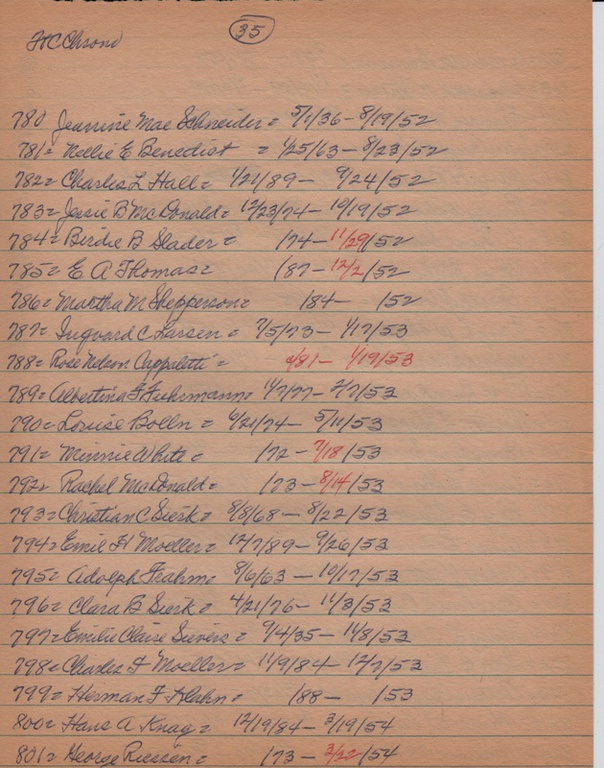 35
HC Chrono
780 Jeanine Mae Schneider = 5/1/36 - 8/19/52
781 = Nellie E Benedict = 1/25/63 - 8/23/52
782 = Charles L Hall = 1/21/89 - 9/24/52
783 = Jessie B McDonald = 12/23/74 - 10/19/52
784 = Birdie B Slader = /74 - 11/29/52
785 = E A Thomas = /87 - 12/2/52
786 = Martha M Shepperson = /84 - /52
787 = Ingvard C Larsen = 7/5/73 - 1/17/53
788 = Rose Nelson Cappaletti = /81 - 1/19/53
789 = Albertina F Fuhrmann = 11/7/77 - 2/7/53
790 = Louise Bolln = 6/21/74 - 5/11/53
791 = Minnie White = /72 - 7/18/53
792 = Rachel McDonald = /73 - 8/14/53
793 = Christian C Sierk = 8/8/68 - 8/22/53
794 = Emil H Moeller = 12/7/89 - 9/26/53
795 = Adolph Frahm = 8/6/63 - 10/17/53
796 = Clara B Sierk = 4/21/76 - 11/3/53
797 = Emilie Claire Sievers = 9/4/35 - 11/8/53
798 = Charles F Moeller = 11/9/84 - 12/7/53
799 = Herman F Hahn = /88 - /53
800 = Hans A Knag = 12/19/84 - 3/19/54
801 = George Riessen = /73 - 3/22/54